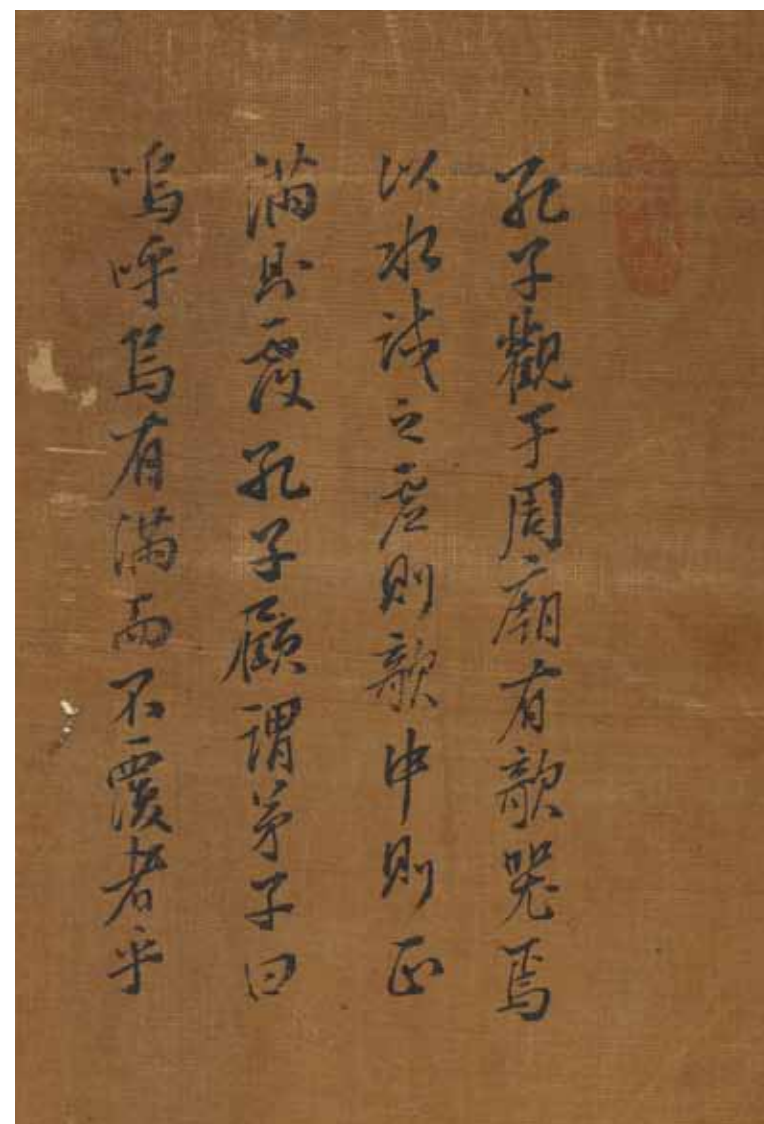 孔子觀于周廟有欹器焉
以水試之虛則欹中則正
滿則覆孔子顧謂弟子曰
嗚呼烏有滿而不覆者乎